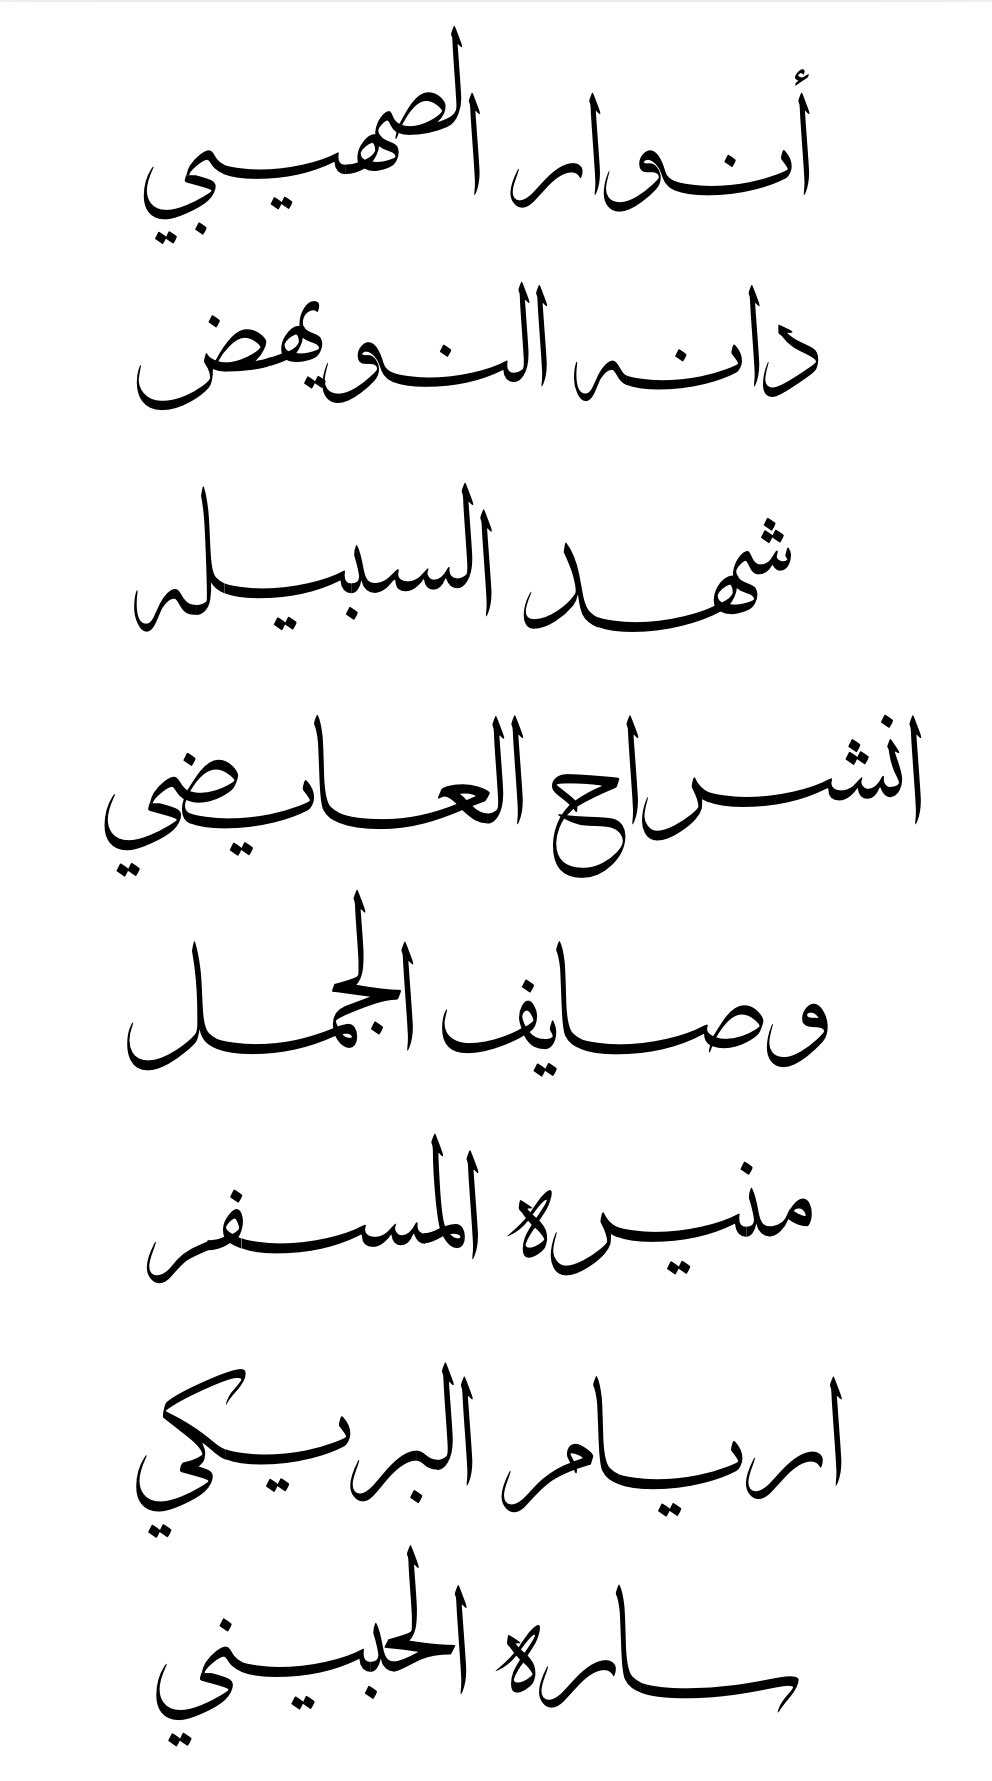 أنوار الصهيبي
دانه النويهض
شهد السبيله
انشراح العايضي
وصايف الجمل
منيره المسفر
اريام البريكي
ساره الحبيني